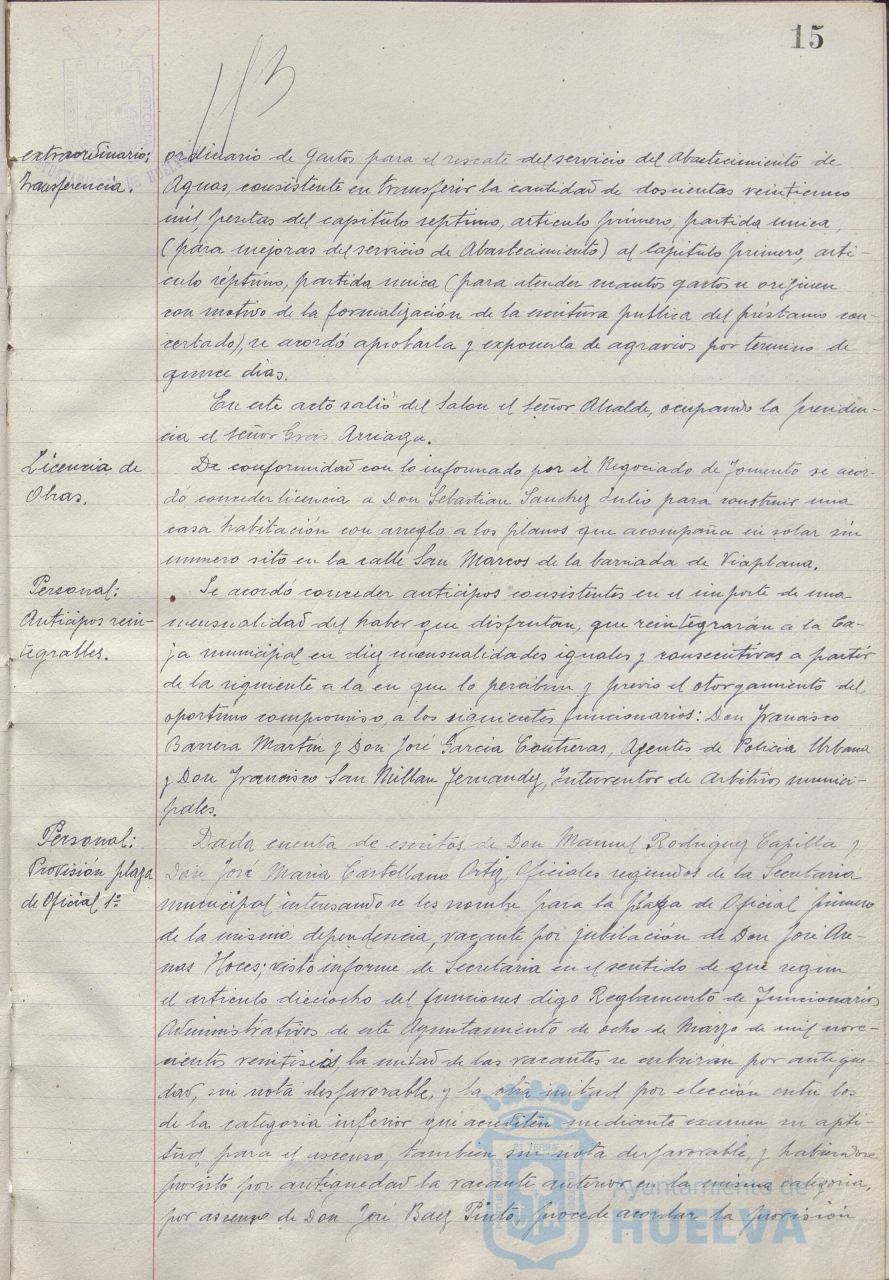 15
113
extraordinario;
transferencia.
ordinario de gastos para el rescate del servicio del Abastecimiento de
Aguas, consistente en transferir la cantidad de doscientas veinticinco
mil, pesetas del capitulo septimo, articulo primero, partida unica,
(para mejoras del servicio de Abastecimiento) al capitulo primero, arti-
culo séptimo, partida unica (para atender cuantos gastos se originen
con motivo de la formalización de la escritura publica del préstamo con-
certado), se acordó aprobarla y exponerla de agravios por termino de
quince dias.
En este acto salió del Salon el señor Alcalde, ocupando la presiden-
cia el señor Gras Arriaga.
Licencia de
Obras.
De conformidad con lo informado por el Negociado de Fomento se acor-
dó conceder licencia a Don Sebastian Sanchez Julio para construir una
casa habitación con arreglo a los planos que acompaña en solar sin
numero sito en la calle San Marcos de la barriada de Viaplana.
Personal:
Anticipos rein-
tegrables.
Se acordó conceder anticipos consistentes en el importe de una
mensualidad del haber que disfrutan, que reintegrarán a la Ca-
ja municipal en diez mensualidades iguales y consecutivas a partir
de la siguiente a la en que lo perciban y previo el otorgamiento del
oportuno compromiso, a los siguientes funcionarios: Don Francisco
Barrera Martin y Don José Garcia Contreras, Agentes de Policia Urbana
y Don Francisco San Millan Fernandez, Interventor de Arbitrios munici-
pales.
Personal:
Provisión plaza
de Oficial 1º
Dada cuenta de escritos de Don Manuel Rodriguez Capilla y
Don José Maria Castellano Ortiz, Oficiales segundos de la Secretaria
municipal interesando se les nombre para la plaza de Oficial primero
de la misma dependencia, vacante por jubilación de Don José Are-
nas Hoces; visto informe de Secretaria en el sentido de que segun
el articulo dieciocho del funciones digo Reglamento de Funcionarios
Administrativos de este Ayuntamiento de ocho de Marzo de mil nove-
cientos veintiseis la mitad de las vacantes se cubrirán por antigue-
dad, sin nota desfavorable, y la otra mitad por elección entre los
de la categoria inferior que acrediten mediante examen su apti-
tud para el ascenso, tambien sin nota desfavorable, y habiendose
provisto por antiguedad la vacante anterior en la misma categoria,
por ascenso de Don José Baez Pinto, procede acordar la provisión
Ayuntamiento de
HUELVA